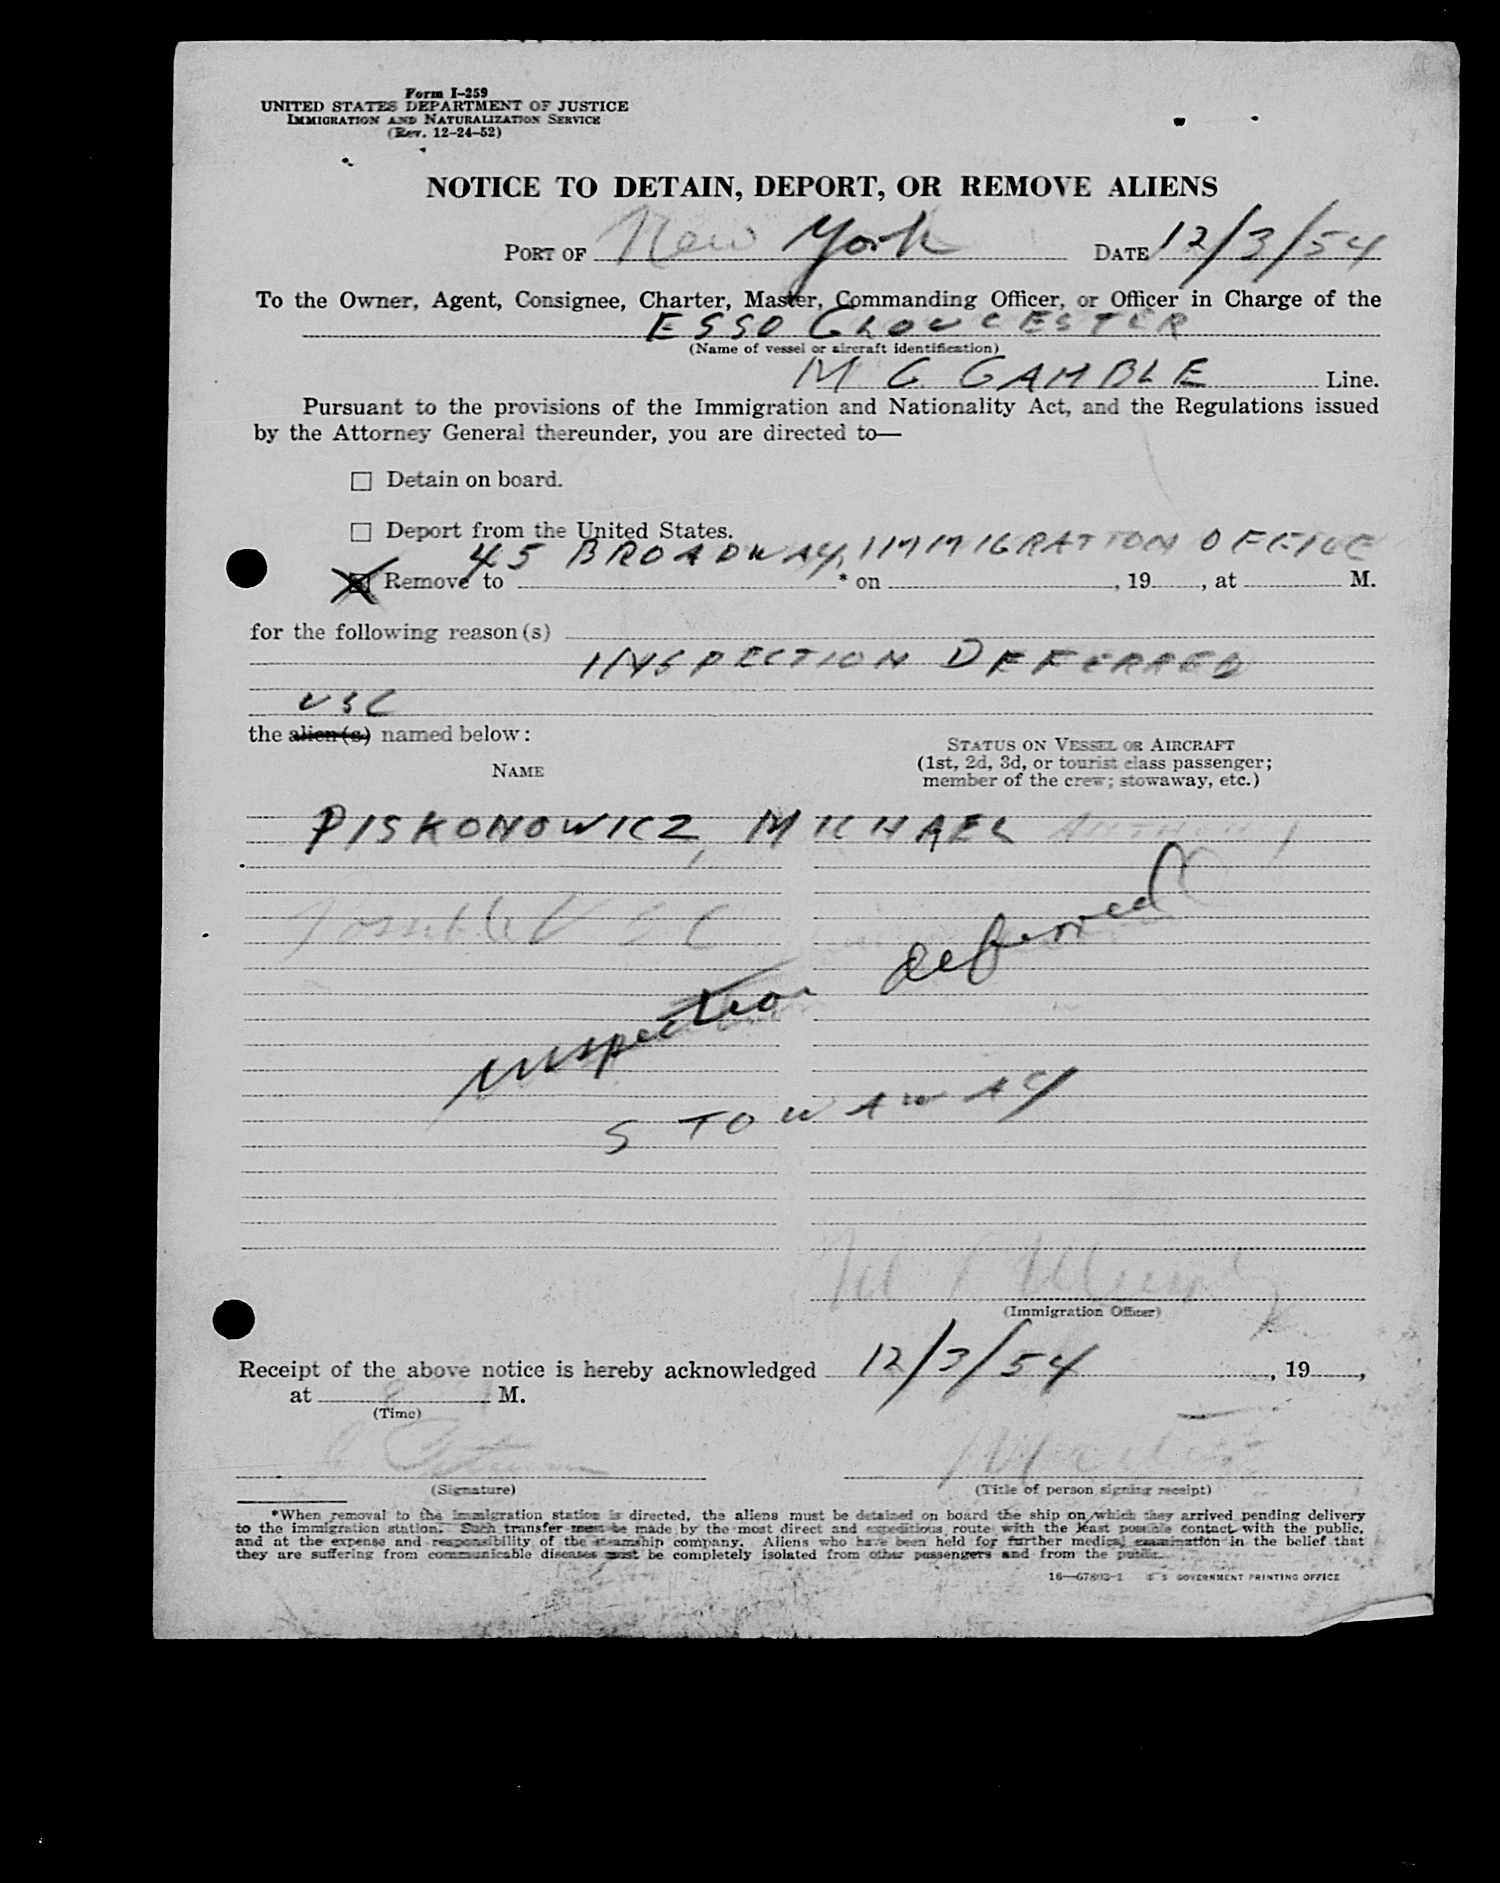 Form I-259
UNITED STATES DEPARTMENT OF JUSTICE
IMMIGRATION AND NATURALIZATION SERVICE
(Rev. 12-24-52)
NOTICE TO DETAIN, DEPORT, OR REMOVE ALIENS
PORT OF New York DATE 12/3/54
To the Owner, Agent, Consignee, Charter, Master, Commanding Officer, or Officer in Charge of the
ESSO GLOUCESTER
(Name of vessel or aircraft identification)
M G GAMBLE Line.
Pursuant to the provisions of the Immigration and Nationality Act, and the Regulations issued
by the Attorney General thereunder, you are directed to—
☐ Detain on board.
☐ Deport from the United States.
45 BROADWAY, IMMIGRATION OFFICE
☒ Remove to * on , 19 , at M.
for the following reason(s)
INSPECTION DEFERRED
USC
the alien(s) named below:
NAME
STATUS ON VESSEL OR AIRCRAFT
(1st, 2d, 3d, or tourist class passenger;
member of the crew; stowaway, etc.)
PISKONOWICZ, MICHAEL ANTHONY
USC
inspection deferred
STOWAWAY
(Immigration Officer)
Receipt of the above notice is hereby acknowledged 12/3/54 , 19 ,
at M.
(Time)
Master
(Signature)
(Title of person signing receipt)
*When removal to the immigration station is directed, the aliens must be detained on board the ship on which they arrived pending delivery
to the immigration station. Such transfer must be made by the most direct and expeditious route with the least possible contact with the public,
and at the expense and responsibility of the steamship company. Aliens who have been held for further medical examination in the belief that
they are suffering from communicable diseases must be completely isolated from other passengers and from the public.
16—67893-1 U S GOVERNMENT PRINTING OFFICE